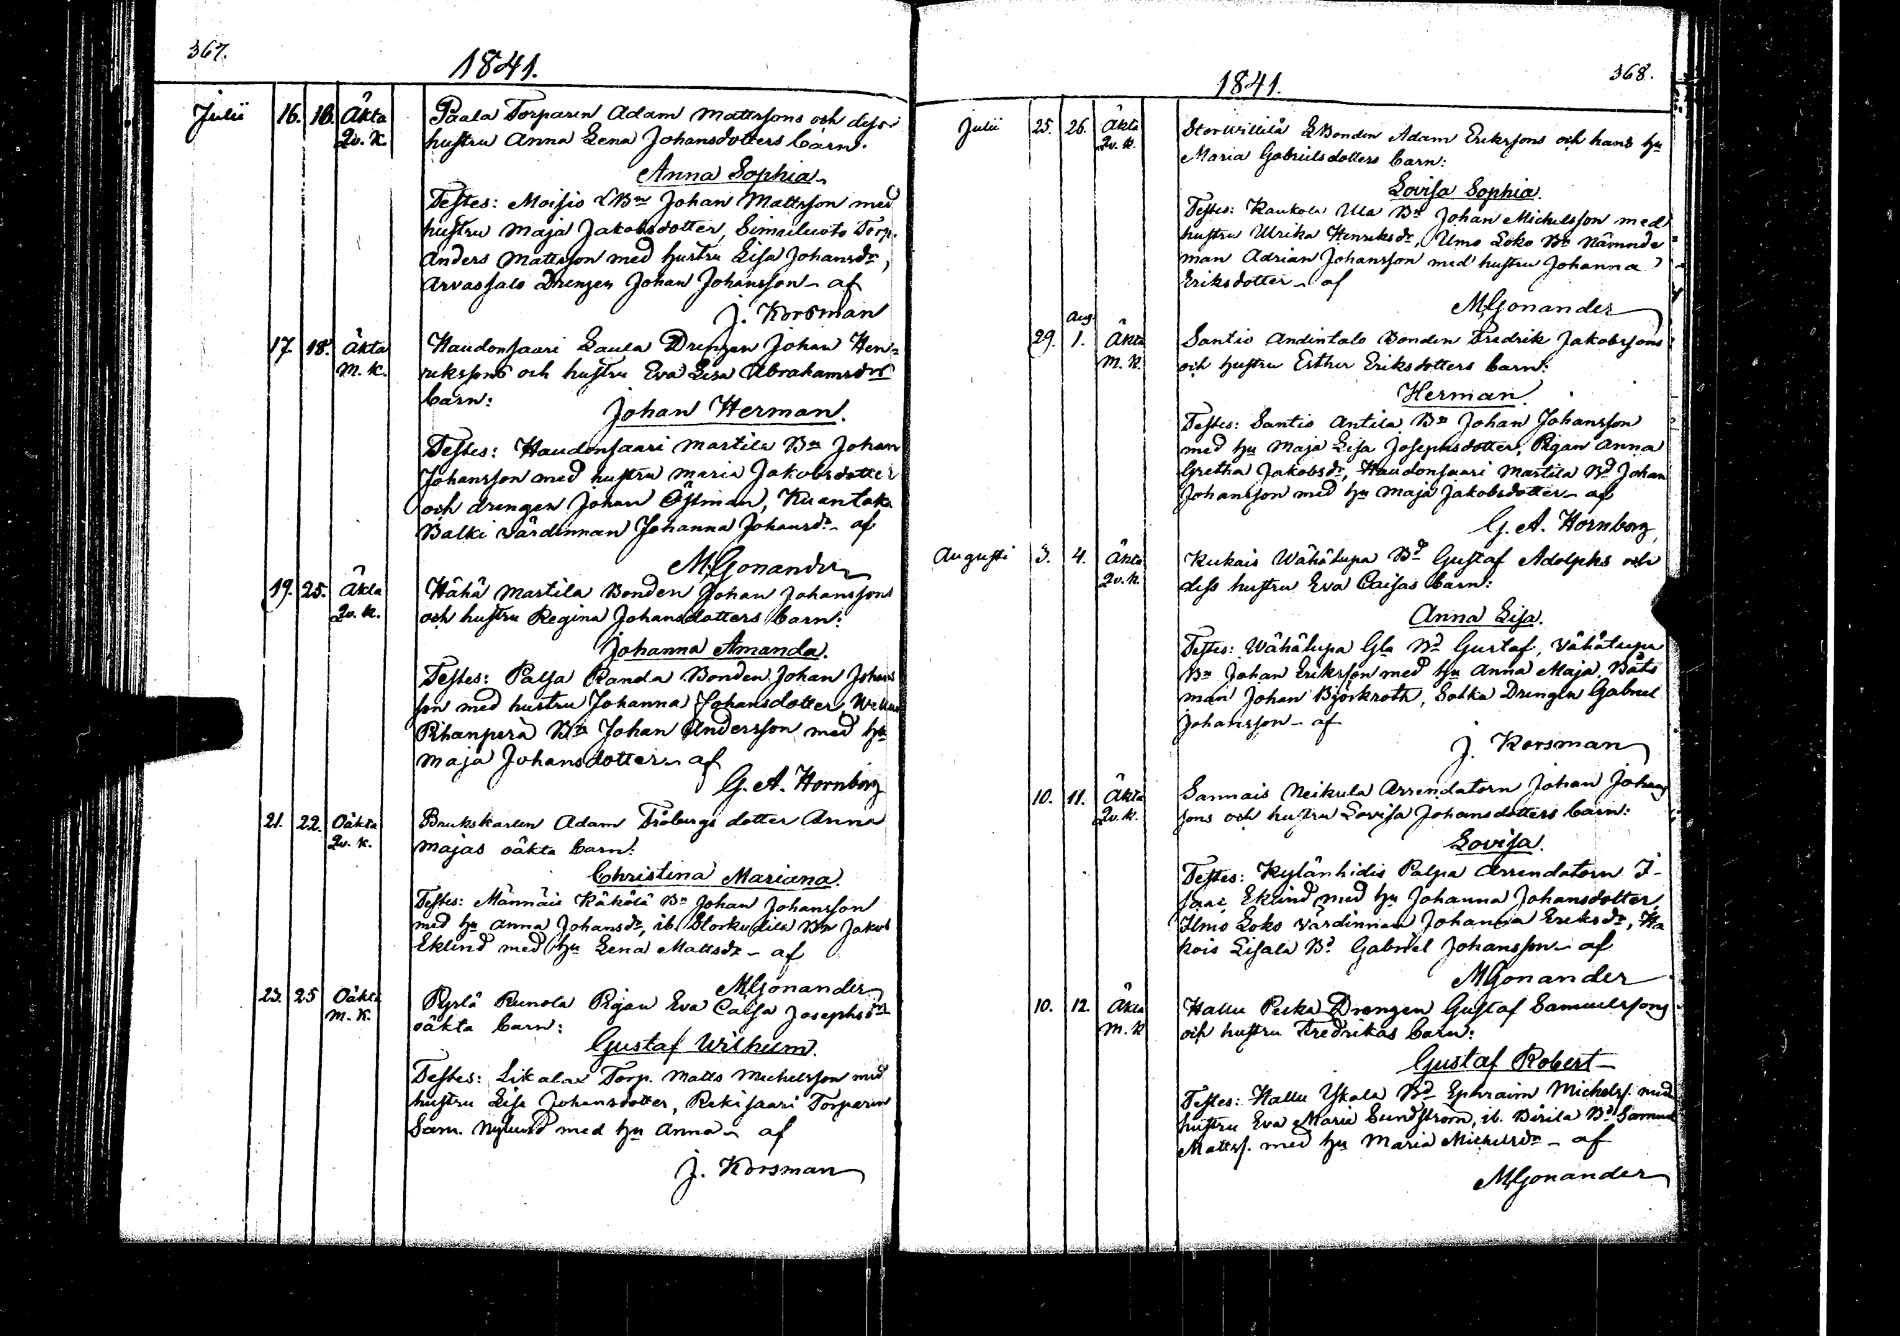 367.
1841.
Julii 16. 16. Äkta Paala Torparen Adam Mattssons och dess
Qv. K. hustru Anna Lena Johansdotters barn.
Anna Sophia
Testes: Moisio LBn Johan Mattsson med
hustru Maja Jakobsdotter, Torp.
Anders Mattsson med hustru Lisa Johansdr,
Arvassalo Drengen Johan Johansson – af
J. Korsman
17. 18. Äkta Haudonsaari Laula Drengen Johan Hen-
M. K. rikssons och hustru Eva Lisa Abrahamsdrs
barn:
Johan Herman.
Testes: Haudonsaari Martila Bn Johan
Johansson med hustru Maria Jakobsdotter
och drengen Johan Östman, Kuantaka
Balki värdinnan Johanna Johansdr – af
M. Gonander
19. 25. Äkta Hähä Martila Bonden Johan Johanssons
Qv. K. och hustru Regina Johansdotters barn:
Johanna Amanda.
Testes: Palsa Ranola Bonden Johan Johans
son med hustru Johanna Johansdotter,
Rihanperä Bn Johan Andersson med hu
Maja Johansdotter – af
G. A. Hornborg
21. 22. Oäkta Brukskarlen Adam Fröbergs dotter Anna
Qv. K. Majas oäkta barn:
Christina Mariana.
Testes: Männäis Käkölä Bn Johan Johansson
med hu Anna Johansdr, ib. Storkulila Bn Jakob
Eklund med hu Lena Mattsdr – af
M. Gonander
23. 25 Oäkta Pyrlä Runola Pigan Eva Cajsa Josephsdrs
M. K. oäkta barn:
Gustaf Wilhelm.
Testes: Likalax Torp. Matts Michelsson med
hustru Lisa Johansdotter, Rekisaari Torparen
Sam. Nylund med hu Anna – af
J. Korsman
368.
1841.
Julii 25. 26. Äkta Storwillilä LBonden Adam Erikssons och hans hu
Qv. K. Maria Gabrielsdotters barn:
Lovisa Sophia.
Testes: Kaukola Ula Bn Johan Michelsson med
hustru Ulrika Henriksdr, Ilmo Loko Bn Nämnde
man Adrian Johansson med hustru Johanna
Eriksdotter – af
M. Gonander
Aug.
29. 1. Äkta Santio Andintalo Bonden Fredrik Jakobssons
M. K. och hustru Esther Eriksdotters barn:
Herman.
Testes: Santio Antila Bn Johan Johansson
med hu Maja Lisa Josephsdotter, Pigan Anna
Gretha Jakobsdr, Haudonsaari Martila Bd Johan
Johansson med hu Maja Jakobsdotter – af
G. A. Hornborg
Augusti 3. 4. Äkta Kukais Wähälupa Bd Gustaf Adolphs och
Qv. K. dess hustru Eva Caisas barn:
Anna Lisa.
Testes: Wähälupa Gla Bd Gustaf, Vähälupa
Bn Johan Eriksson med hu Anna Maja, Båts
man Johan Björkroth, Solka Drengen Gabriel
Johansson – af
J. Korsman
10. 11. Äkta Sannais Neikula Arrendatorn Johan Johans
Qv. K. sons och hustru Lovisa Johansdotters barn:
Lovisa.
Testes: Kylänhidis Palpa Arrendatorn I-
saac Eklund med hu Johanna Johansdotter,
Ilmo Loko värdinnan Johanna Eriksdr, Ha
kois Lisala Bd Gabriel Johansson – af
M. Gonander
10. 12. Äkta Hallu Pecka Drengen Gustaf Samuelssons
M. K och hustru Fredrikas barn:
Gustaf Robert
Testes: Hallu Yskala Bd Ephraim Michelss. med
hustru Eva Maria Lundström, ib. Birila Bd Samuel
Mattss. med hu Maria Michelsdr – af
M. Gonander